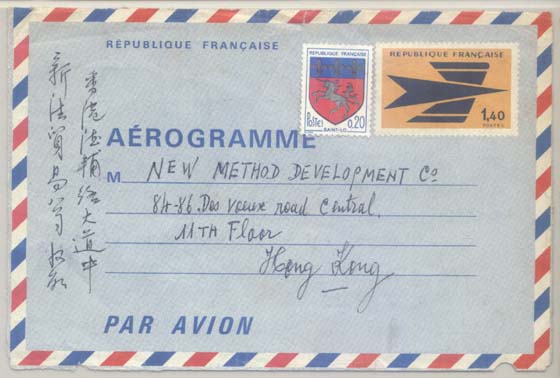 RÉPUBLIQUE FRANÇAISE
RÉPUBLIQUE FRANÇAISE
Postes 0,20
SAINT-LO
RÉPUBLIQUE FRANÇAISE
1,40
POSTES
AÉROGRAMME
M NEW METHOD DEVELOPMENT Co
84-86. Des Voeux road Central.
11TH Floor
Hong Kong
PAR AVION
香港德輔大道中
新法貿易公司收